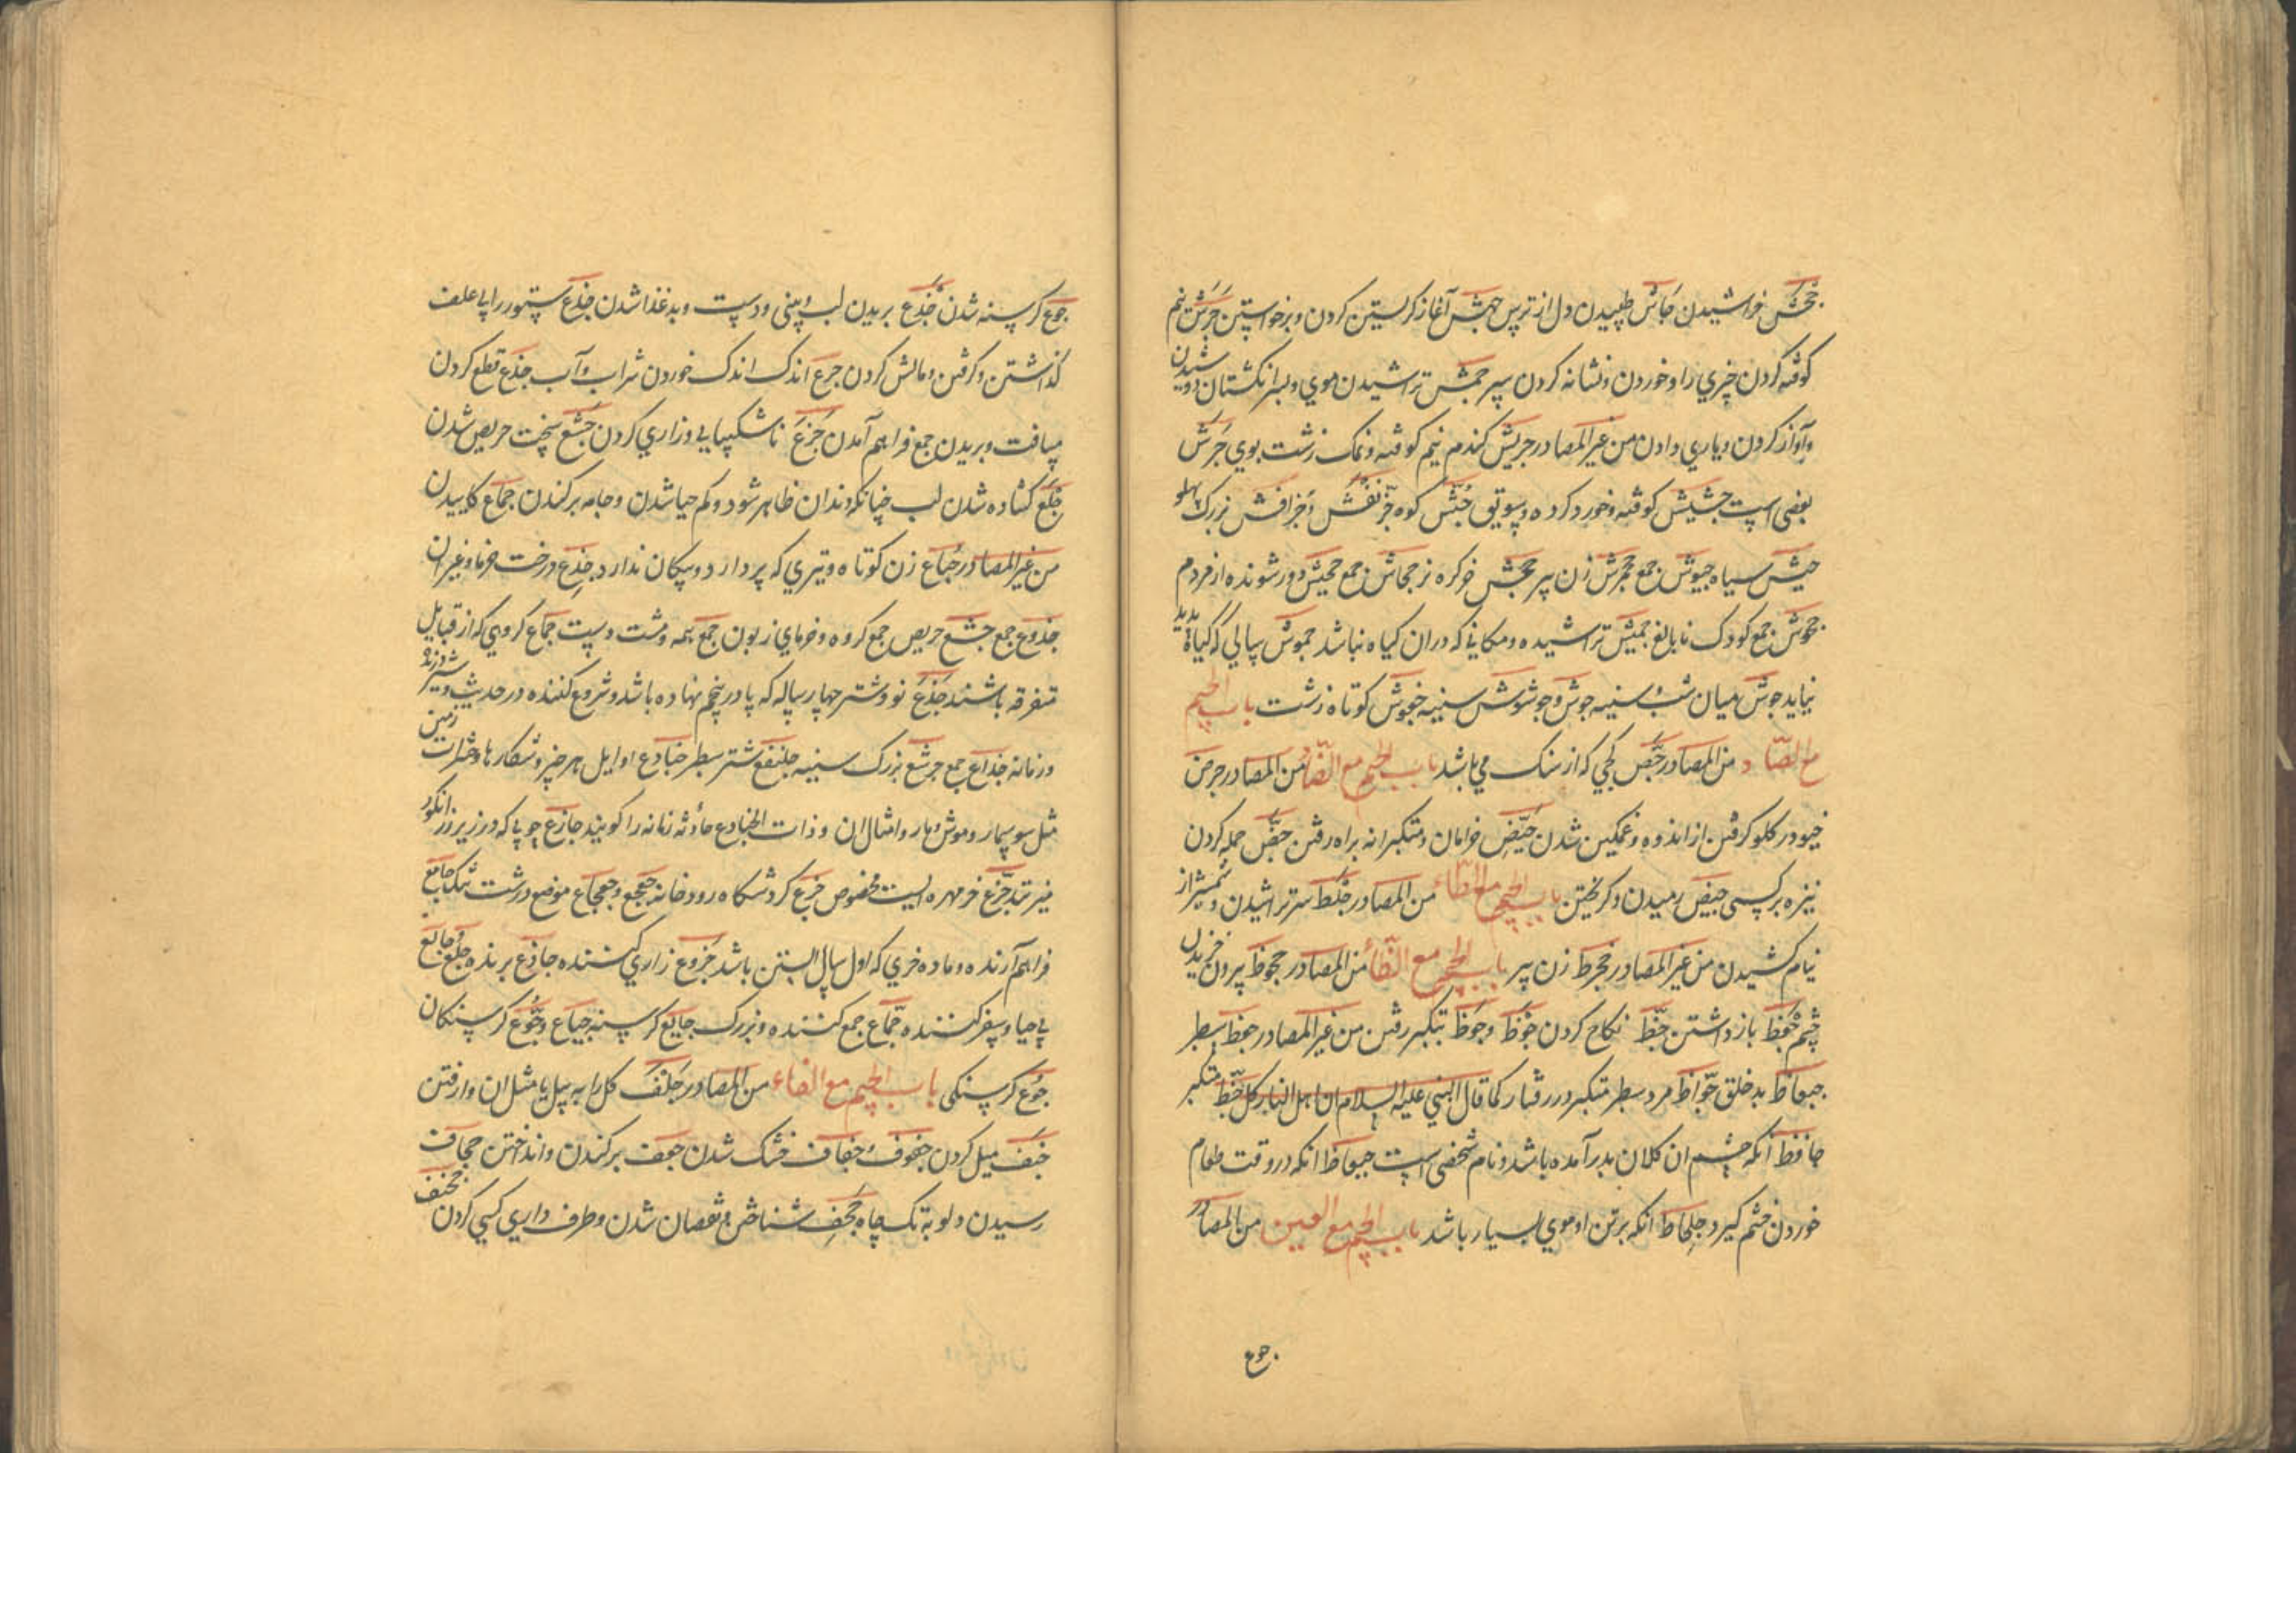 جحش خراشیدن جاش طپیدن دل از ترس جهش آغاز گریستن کردن و برخواستن جرش نیم
کوفته کردن چیزي را و خوردن و نشانه کردن سپر جمش تراشیدن موي و بسر انگشتان دوشیدن
و آواز کردن و یاري دادن من غیر المصادر جریش گندم نیم کوفته و نمک زشت بوي جرش
بعضی است جشیش کوفته و خورد کرده و سویق جش کوه جرنفش و جرافش بزرک پهلو
حبش سیاه جیوش جمع جحمرش زن پیر جحش خر کره نر جحاش جمع جحیش دور شونده از مردم
جحوش جمع کودک نا بالغ جمیش تراشیده و مکانی که در ان کیاه نباشد جموش سالی که کیاه پدید
نیاید جوش میان شب و سینه جوش و جوشوش سینه جنبوش کوتاه زشت باب الجیم
مع الصاد من المصادر جص کچی که از سنک می باشد باب الجیم مع الضاد من المصادر جرض
خیو در کلو کرفتن از اندوه و غمکین شدن جیض خرامان و متکبرانه براه رفتن جض حمله کردن
نیزه بر کسی جیض رمیدن و کریختن باب الجیم مع الطاء من المصادر جلط سر تراشیدن و شمشیر از
نیام کشیدن من غیر المصادر جحرط زن پیر باب الجیم مع الظاء من المصادر جحوظ بیرون خزیدن
چشم جفظ باز داشتن جظ نکاح کردن جوظ و جوظ بتکبر رفتن من غیر المصادر جوظ سطبر
جعاظ بد خلق جواظ مرد سطبر متکبر در رفتار کما قال النبي علیه السلام ان اهل النار کل جظ متکبر
جاحظ آنکه چشم ان کلان بدر آمده باشد و نام شخصی است جعاظ انکه در وقت طعام
خوردن خشم کیرد جلحاظ انکه برتن او موي بسیار باشد باب الجیم مع العین من المصادر
جوع
جوع کرسنه شدن جدع بریدن لب و بینی و دست و بد غذا شدن جذع ستور را بی علف
گذاشتن و کرفتن و مالش کردن جرع اندک اندک خوردن شراب و آب جزع قطع کردن
مسافت و بریدن جمع فراهم آمدن جزع ناشکیبایی و زاري کردن جشع سخت حریص شدن
جلع کشاده شدن لب چنانکه دندان ظاهر شود و کم حیا شدن و جامه برکندن جماع کاییدن
من غیر المصادر جباع زن کوتاه و تیري که پر دارد و پیکان ندارد جذع درخت خرما و غیر ان
جذوع جمع جشع حریص جمع کروه و خرماي زبون جمع همه و مشت دست جماع کروهی که از قبایل
متفرقه باشند جذع نو و شتر چهار ساله که پا در پنجم نهاده باشد و شروع کننده در حدیث و شیر درنده
و زمانه جذاع جمع جرشع بزرک سینه جلنفع شتر سطبر جنادع اوایل هر چیز و شکارها و حشرات زمین
مثل سوسمار و موش و مار و امثال ان و ذات الجنادع حادثه زمانه را کویند جازع چوبی که در زیر رز انکور
میزنند جزع خر مهره ایست مخصوص جزع کردشکاه رودخانه جعجع و جعجاع موضع درشت تنک جامع
فراهم آرنده و ماده خري که اول سال ابستن باشد جزوع زاري کننده جاذع برنده جلع و جالع
بی حیا و سفر کننده جماع جمع کننده و بزرک جایع کرسنه جیاع و جوع کرسنکان
جوع کرسنکی باب الجیم مع الفاء من المصادر جلف کل را به بیل یا مثل ان وا رفتن
جنف میل کردن جفوف و جفاف خشک شدن جعف برکندن و انداختن جحاف
رسیدن دلو بته تک چاه جحف شناختن و نقصان شدن و طرف داري کسی کردن جخف